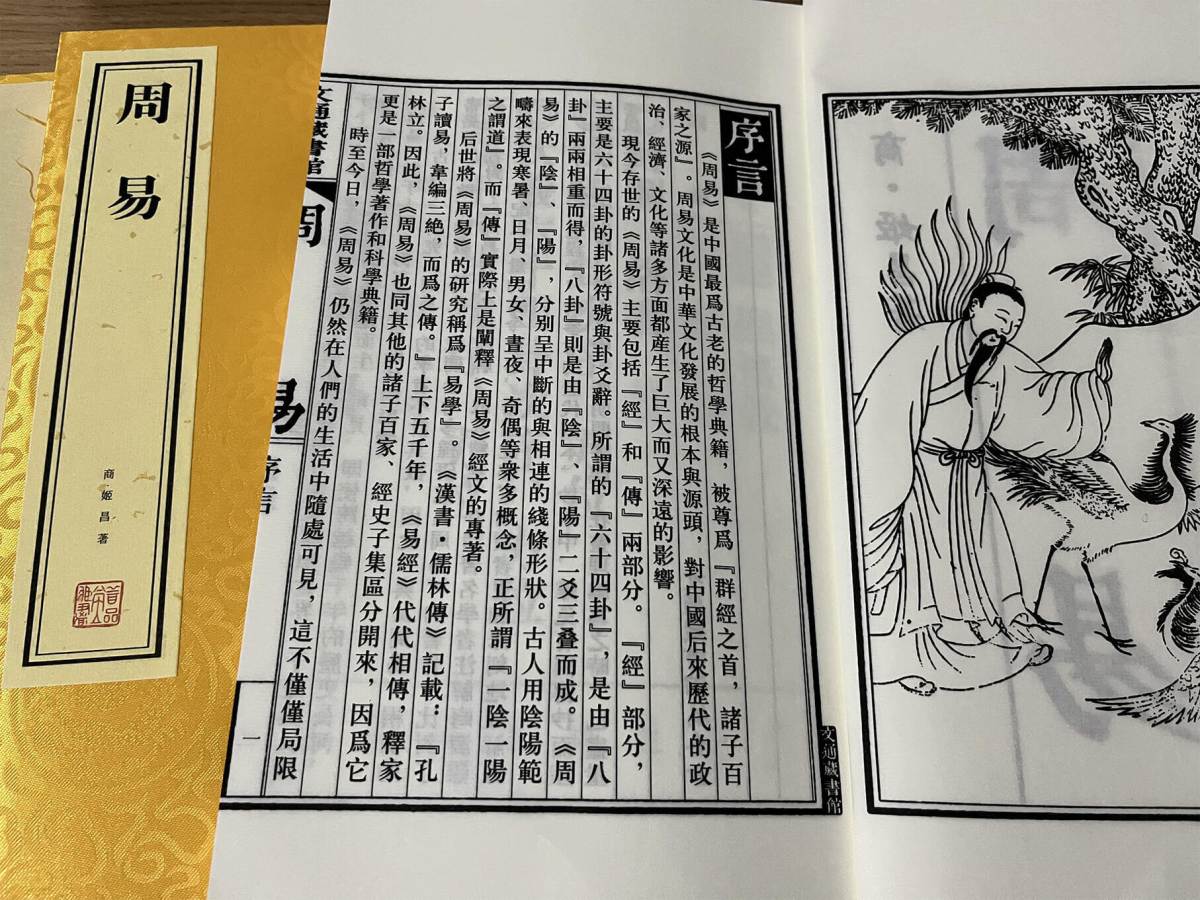 周易
商·姬昌 著
序言
《周易》是中國最爲古老的哲學典籍，被尊爲『群經之首，諸子百
家之源』。周易文化是中華文化發展的根本與源頭，對中國后來歷代的政
治、經濟、文化等諸多方面都産生了巨大而又深遠的影響。
現今存世的《周易》主要包括『經』和『傳』兩部分。『經』部分，
主要是六十四卦的卦形符號與卦爻辭。所謂的『六十四卦』，是由『八
卦』兩兩相重而得，『八卦』則是由『陰』、『陽』二爻三叠而成。《周
易》的『陰』、『陽』，分别呈中斷的與相連的綫條形狀。古人用陰陽範
疇來表現寒暑、日月、男女、晝夜、奇偶等衆多概念，正所謂『一陰一陽
之謂道』。而『傳』實際上是闡釋《周易》經文的專著。
后世將《周易》的研究稱爲『易學』。《漢書·儒林傳》記載：『孔
子讀易，韋編三絶，而爲之傳。』上下五千年，《易經》代代相傳，釋家
林立。因此，《周易》也同其他的諸子百家、經史子集區分開來，因爲它
更是一部哲學著作和科學典籍。
時至今日，《周易》仍然在人們的生活中隨處可見，這不僅僅局限
文通藏書館
周易
序言
一
文通藏書館